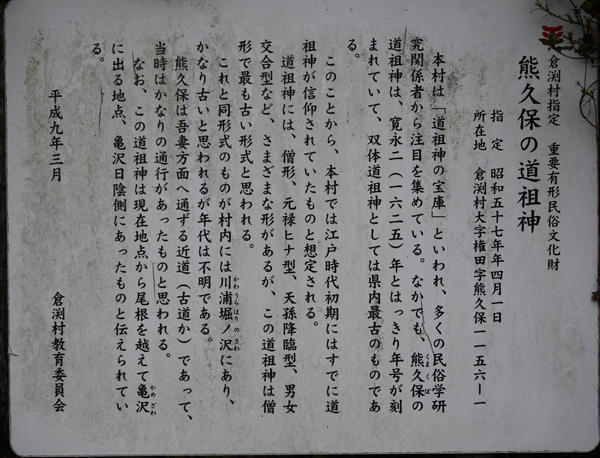 倉渕村指定　重要有形民俗文化財
熊久保の道祖神
指　定　昭和五十七年年四月一日
所在地　倉渕村大字権田字熊久保一一五六ー一
本村は「道祖神の宝庫」といわれ、多くの民俗学研
究関係者から注目を集めている。なかでも、熊久保の
くまくぼ
道祖神は、寛永二（一六二五）年とはっきり年号が刻
まれていて、双体道祖神としては県内最古のものであ
る。
このことから、本村では江戸時代初期にはすでに道
祖神が信仰されていたものと想定される。
道祖神には、僧形、元禄ヒナ型、天孫降臨型、男女
交合型など、さまざまな形があるが、この道祖神は僧
形で最も古い形式と思われる。
これと同形式のものが村内には川浦堀ノ沢にあり、
かわうらほりのさわ
かなり古いと思われるが年代は不明である。
熊久保は吾妻方面へ通ずる近道（古道か）であって、
当時はかなりの通行があったものと思われる。
なお、この道祖神は現在地点から尾根を越えて亀沢
かめざわ
に出る地点、亀沢日陰側にあったものと伝えられてい
る。
平成九年三月
倉渕村教育委員会